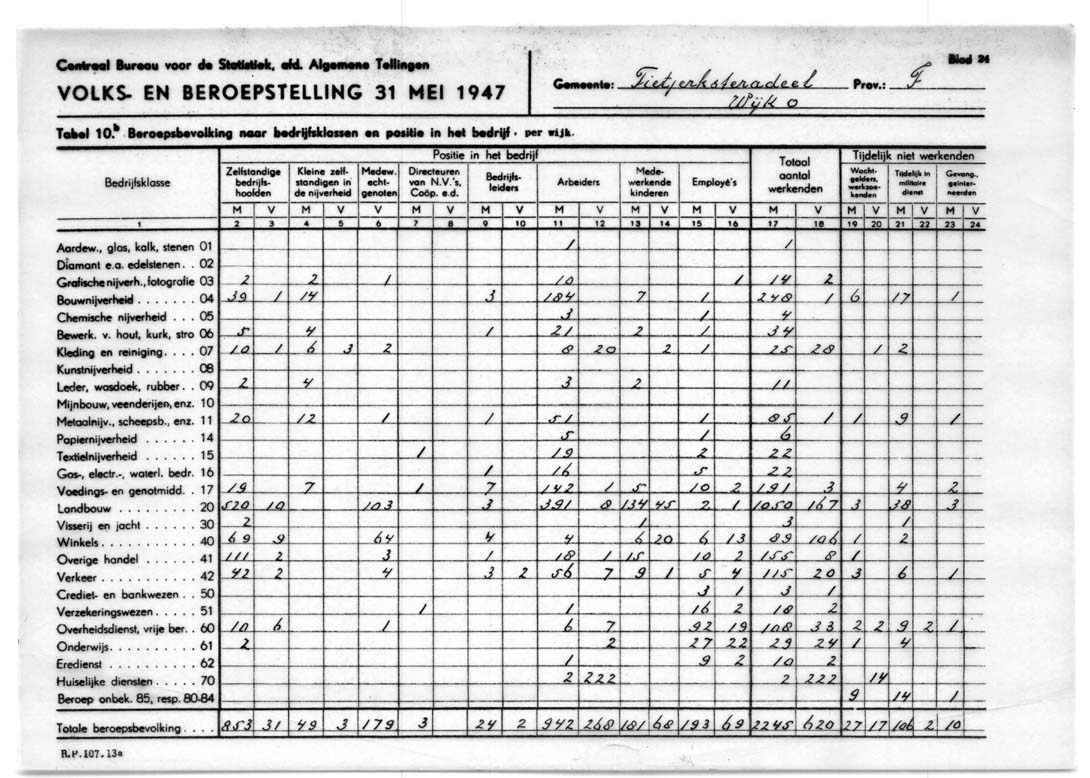 Centraal Bureau voor de Statistiek, afd. Algemene Tellingen
VOLKS- EN BEROEPSTELLING 31 MEI 1947
Gemeente: Tietjerksteradeel Prov.: F Blad 24
Wijk O
Tabel 10.b Beroepsbevolking naar bedrijfsklassen en positie in het bedrijf, per wijk.
Bedrijfsklasse Positie in het bedrijf Totaal aantal werkenden Tijdelijk niet werkenden
Zelfstandige bedrijfs-hoofden Kleine zelf-standigen in de nijverheid Medew. echt-genoten Directeuren van N.V.'s, Coöp. e.d. Bedrijfs-leiders Arbeiders Mede-werkende kinderen Employé's Wacht-gelders, werkzoe-kenden Tijdelijk in militaire dienst Gevang., geïnter-neerden
M V M V V M V M V M V M V M V M V M V M V M V
1 2 3 4 5 6 7 8 9 10 11 12 13 14 15 16 17 18 19 20 21 22 23 24
Aardew., glas, kalk, stenen 01 1 1
Diamant e.a. edelstenen . . 02
Grafische nijverh., fotografie 03 2 2 1 10 1 14 2
Bouwnijverheid . . . . . . . 04 39 1 14 3 184 7 1 248 1 6 17 1
Chemische nijverheid . . . 05 3 1 4
Bewerk. v. hout, kurk, stro 06 5 4 1 21 2 1 34
Kleding en reiniging. . . . 07 10 1 6 3 2 8 20 2 1 25 28 1 2
Kunstnijverheid . . . . . . . 08
Leder, wasdoek, rubber . . 09 2 4 3 2 11
Mijnbouw, veenderijen, enz. 10
Metaalnijv., scheepsb., enz. 11 20 12 1 1 51 1 85 1 1 9 1
Papiernijverheid . . . . . . 14 5 1 6
Textielnijverheid . . . . . . 15 1 19 2 22
Gas-, electr.-, waterl. bedr. 16 1 16 5 22
Voedings- en genotmidd. . 17 19 7 1 7 142 1 5 10 2 191 3 4 2
Landbouw . . . . . . . . . 20 520 10 103 3 391 8 134 45 2 1 1050 167 3 38 3
Visserij en jacht . . . . . . 30 2 1 3 1
Winkels . . . . . . . . . . 40 69 9 64 4 4 6 20 6 13 89 106 1 2
Overige handel . . . . . . 41 111 2 3 1 18 1 15 10 2 155 8 1
Verkeer . . . . . . . . . . 42 42 2 4 3 2 56 7 9 1 5 4 115 20 3 6 1
Crediet- en bankwezen . . 50 3 1 3 1
Verzekeringswezen . . . . 51 1 1 16 2 18 2
Overheidsdienst, vrije ber. . 60 10 6 1 6 7 92 19 108 33 2 2 9 2 1
Onderwijs. . . . . . . . . . 61 2 2 27 22 29 24 1 4
Eredienst . . . . . . . . . 62 1 9 2 10 2
Huiselijke diensten . . . . . 70 2 222 2 222 14
Beroep onbek. 85, resp. 80-84 9 14 1
Totale beroepsbevolking . . . . 853 31 49 3 179 3 24 2 942 268 181 68 193 69 2245 620 27 17 106 2 10
R.P.107.13a